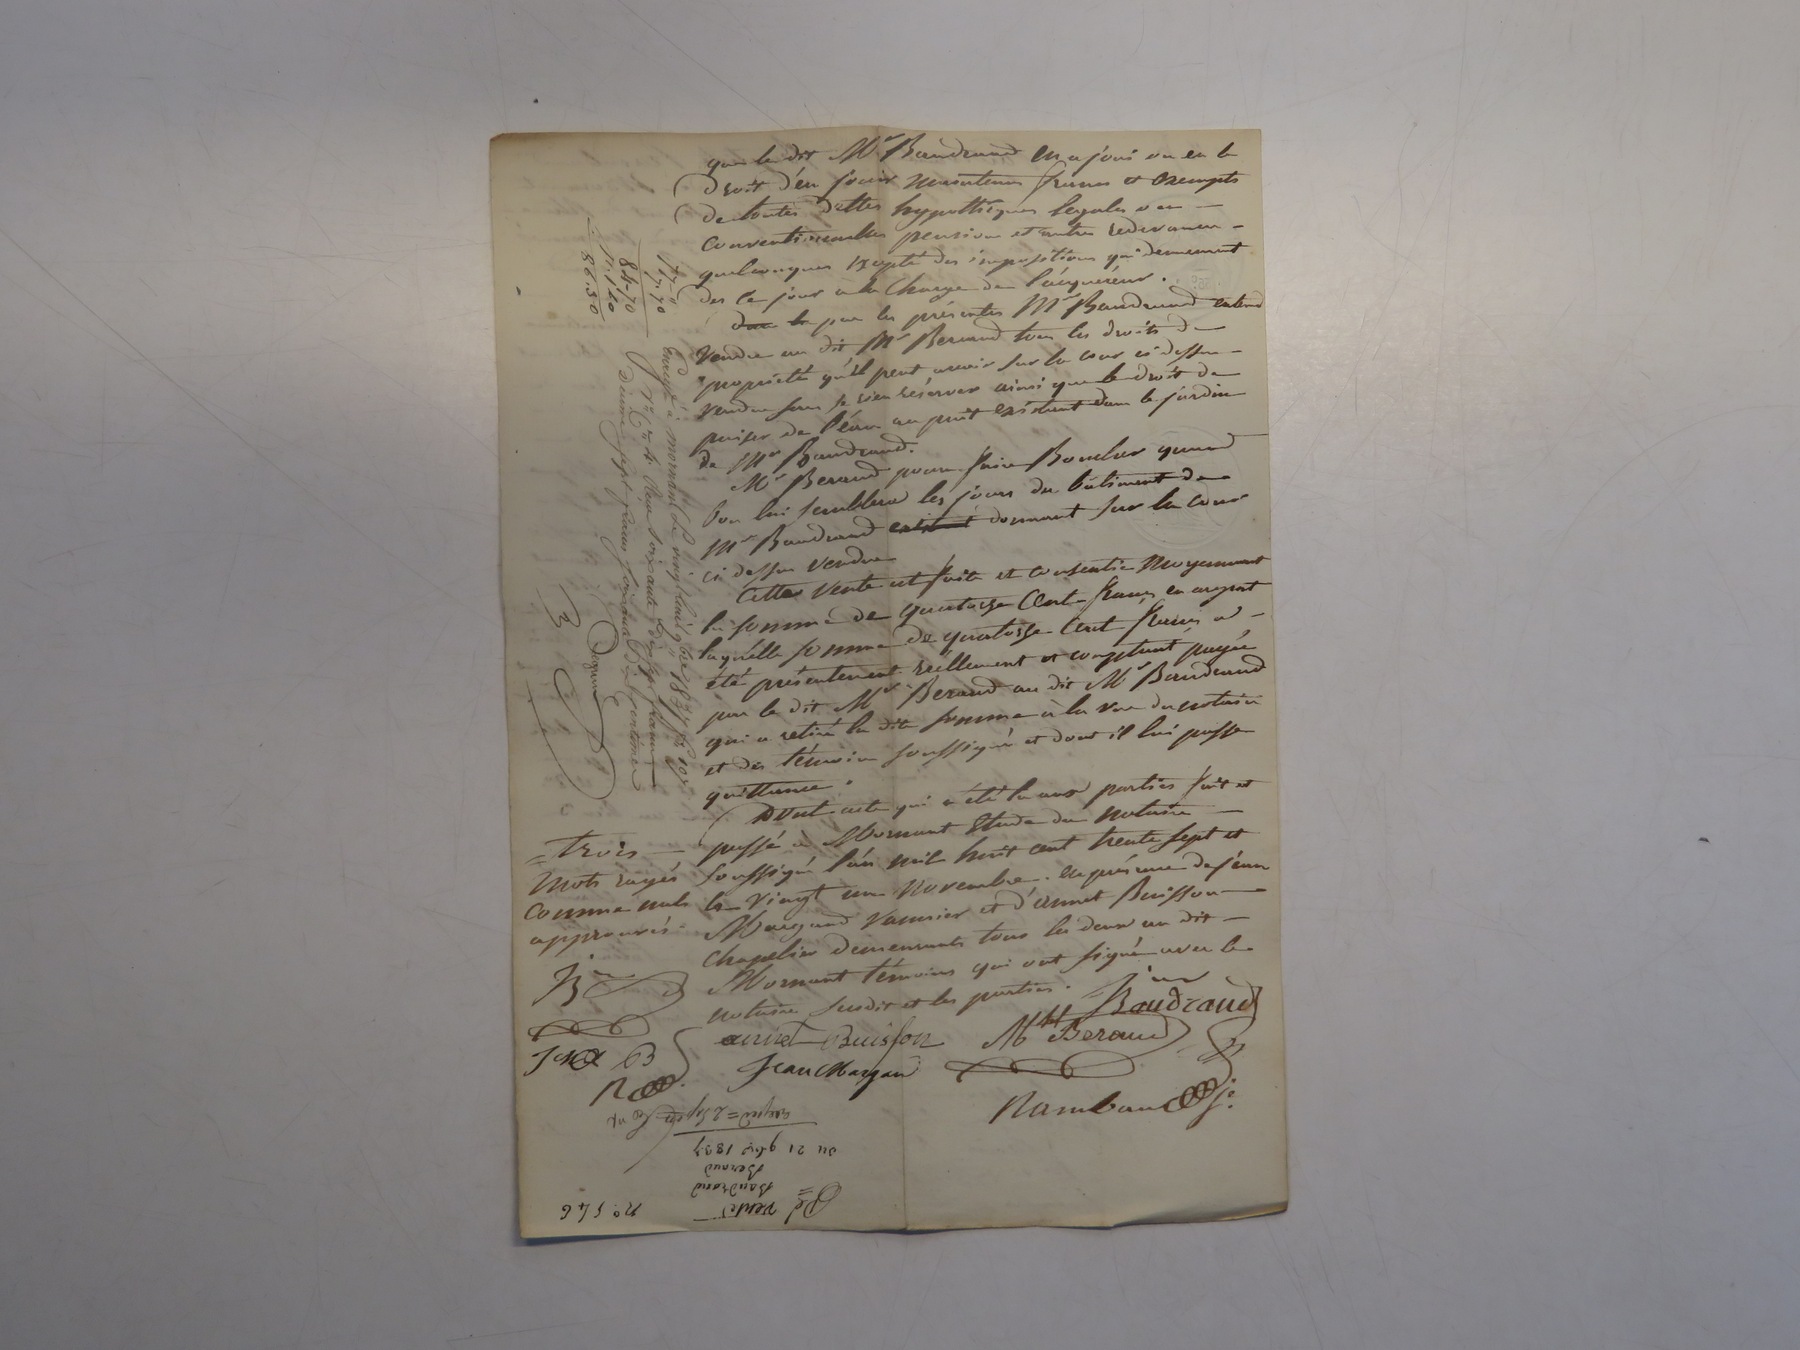 que le dit Mr Baudrand en a joui ou eu le
droit d'en jouir maintenus francs et exempts
de toutes dettes hypothèques legales ou
conventionnelles pension et autres redevances
quelconques excepté des impositions qui demeurent
des ce jour a la charge de l'acquéreur.
par les présentes Mr Baudrand entend
vendre au dit Mr Beraud tous les droits de
propriété qu'il peut avoir sur la cour ci dessus
vendue sans se rien réserver ainsi que le droit de
puiser de l'eau au puit existant dans le jardin
de Mr Baudrand.
Mr Beraud poura faire Boucher quand
bon lui semblera les jours du bâtiment de
Mr Baudrand existant donnant sur la cour
ci dessus vendue
Cette vente est faite et consentie moyennant
la somme de quatorze Cent francs en argent
laquelle somme de quatorze Cent francs a
été présentement réellement et comptant payée
par le dit Mr Beraud au dit Mr Baudrand
qui a retiré la dite somme a la vue du notaire
et des témoins soussignés et dont il lui passe
quittance.
Dont acte qui a été lu aux parties fait et
passé a Mornant Etude du notaire
soussigné l'an mil huit cent trente sept et
le vingt un novembre. En présence de Jean
Margand vannier et d'annet Buisson
chapelier demeurants tous les deux au dit
Mornant témoins qui ont signé avec le
notaire susdit et les parties.
= trois
mots rayés
comme nuls
approuvés =
Baudraud
annet Buisson
Mht Beraud
Jean Margand
Rambaud Je
B
77 "
7. 70
84. 70
1. 60
86. 30
Enregé à mornant le vingt huit 9bre 1837
Reçu soixante dix sept francs
décime sept francs soixante dix centimes
nº 546
vente
Baudrand
Beraud
du 21 9bre 1837